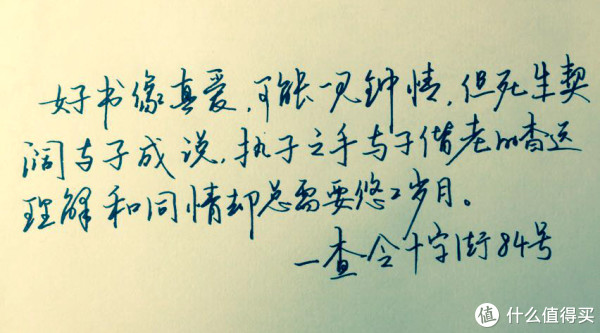 好书像真爱,可能一见钟情,但死生契
阔与子成说,执子之手与子偕老的杳远
理解和同情却总需要悠悠岁月。
—查令十字街84号
值 什么值得买